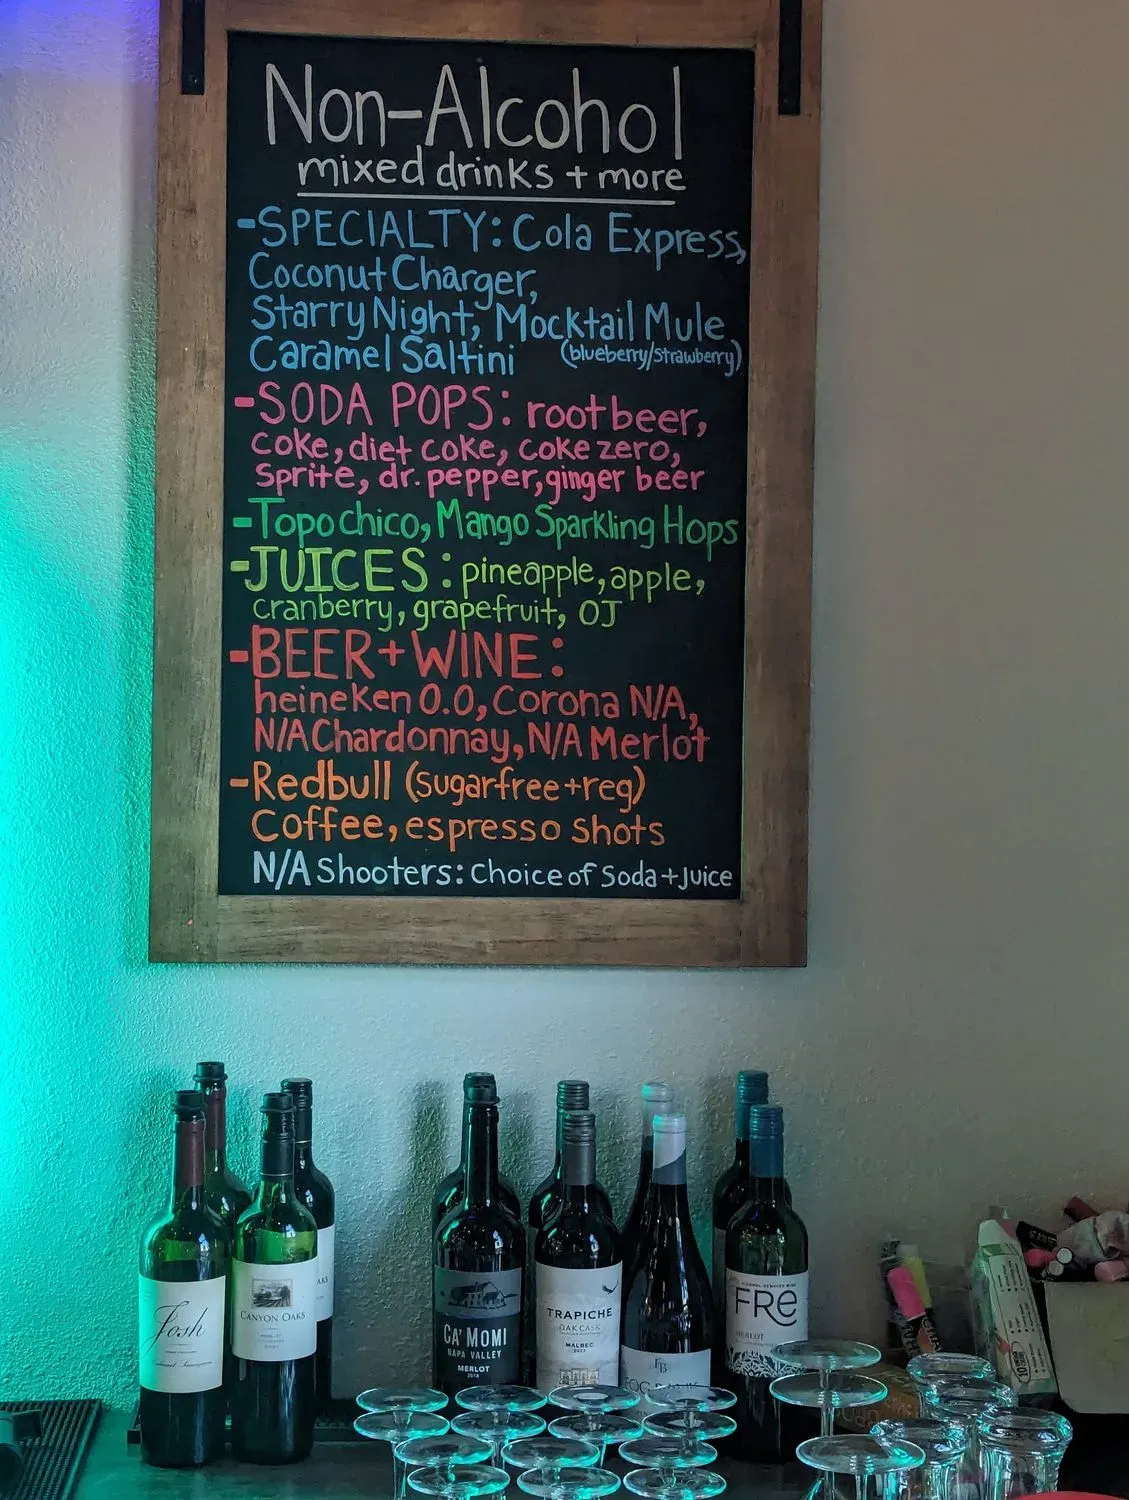 Non-Alcohol
mixed drinks + more
-SPECIALTY: Cola Express,
Coconut Charger,
Starry Night, Mocktail Mule
Caramel Saltini (blueberry/strawberry)
-SODA POPS: root beer,
coke, diet coke, coke zero,
Sprite, dr. pepper, ginger beer
-Topo chico, Mango Sparkling Hops
-JUICES: pineapple, apple,
cranberry, grapefruit, OJ
-BEER+WINE:
heineken 0.0, Corona N/A,
N/A Chardonnay, N/A Merlot
-Redbull (sugarfree+reg)
Coffee, espresso shots
N/A Shooters: Choice of Soda+Juice
Josh
Cabernet Sauvignon
CANYON OAKS
MERLOT
OAKS
CA' MOMI
NAPA VALLEY
MERLOT
2018
TRAPICHE
OAK CASK
MALBEC
FB
FRE
MERLOT